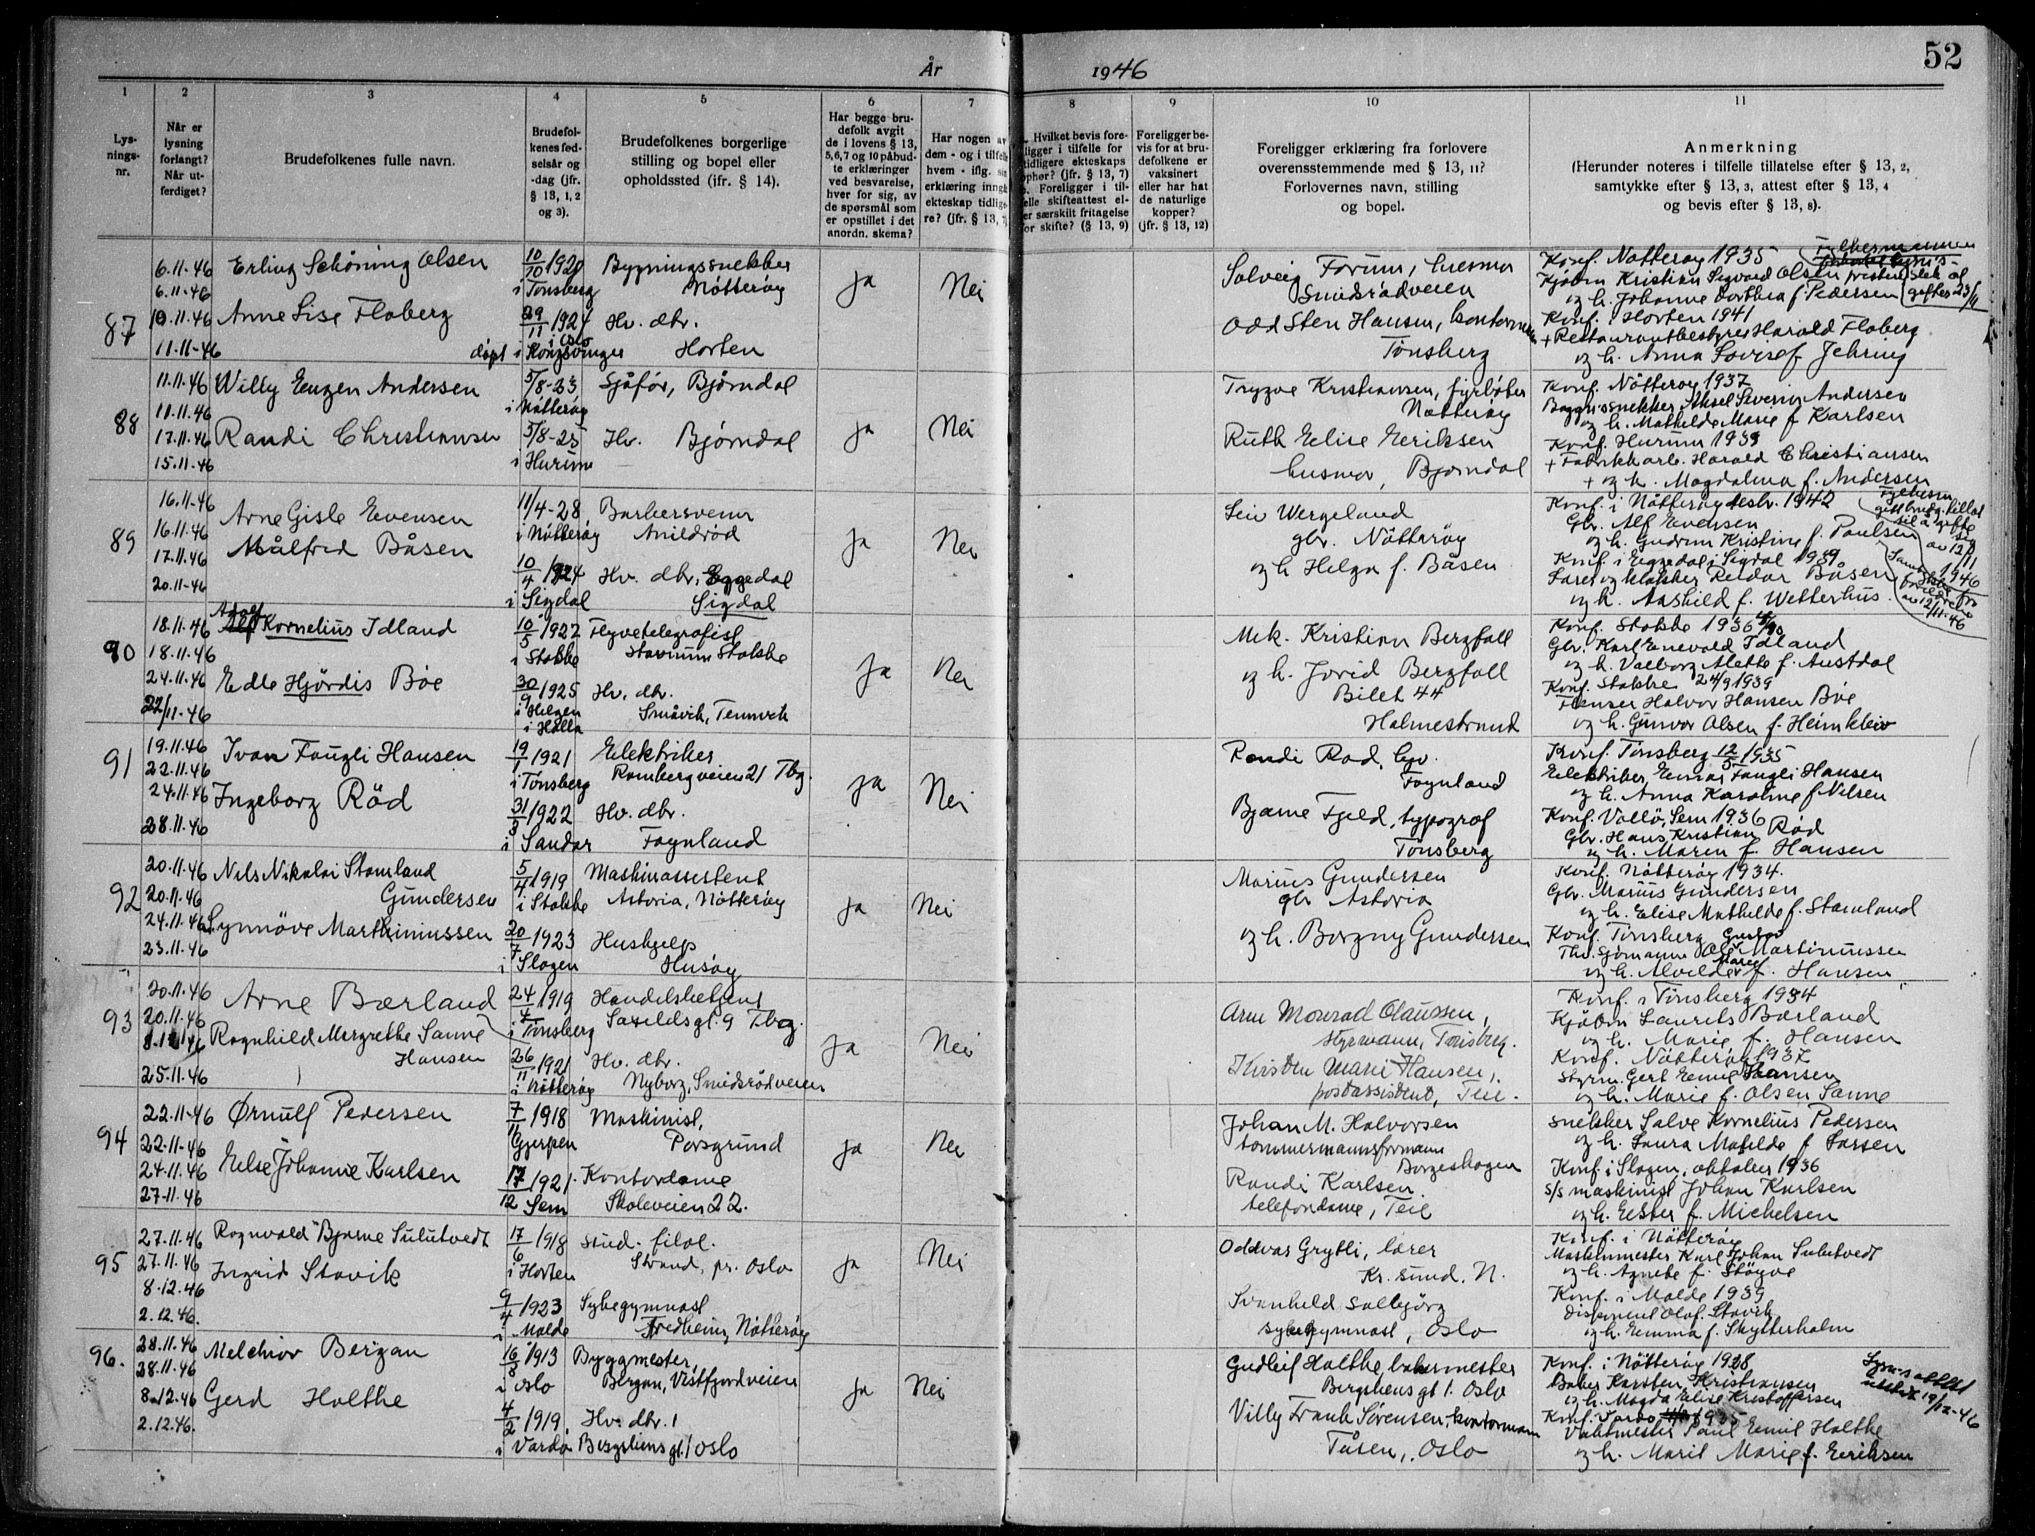 52
År 1946
1
2
3
4
5
6
7
8
9
10
11
Lys-
nings-
nr.
Når er
lysning
forlangt?
Når ut-
ferdiget?
Brudefolkenes fulle navn.
Brudefol-
kenes fød-
selsår og
-dag (jfr.
§ 13, 1, 2
og 3).
Brudefolkenes borgerlige
stilling og bopel eller
opholdssted (jfr. § 14).
Har begge bru-
defolk avgit
de i lovens § 13,
5, 6, 7 og 10 påbud-
te erklæringer
ved besvarelse,
hver for sig, av
de spørsmål som
er opstillet i det
anordn. skema?
Har nogen av
dem - og i tilfelle
hvem - iflg. sin
erklæring inngå
ekteskap tidlige-
re? (jfr. § 13, 7
Hvilket bevis fore-
ligger i tilfelle for
tidligere ekteskaps
ophør? (jfr. § 13, 7)
Foreligger i til-
felle skifteattest el-
er særskilt fritagelse
for skifte? (§ 13, 9)
Foreligger be-
vis for at bru-
defolkene er
vaksinert
eller har hat
de naturlige
kopper?
(jfr. § 13, 12)
Foreligger erklæring fra forlovere
overensstemmende med § 13, 11?
Forlovernes navn, stilling
og bopel.
Anmerkning
(Herunder noteres i tilfelle tillatelse efter § 13, 2,
samtykke efter § 13, 3, attest efter § 13, 4
og bevis efter § 13, 8).
87
6.11.46
6.11.46
10.11.46
11.11-46
Erling Schöning Olsen
Anne Lise Floberg
10/10 1920
i Tønsberg
29/11 1924
i Oslo
døpt i Kongsvinger
Bygningssnekker
Nøtterøy
Hv. dtr.
Horten
Ja
Nei
Solveig Forum, husmor
Smidsrødveien
Odd Sten Hansen, kontormann
Tønsberg
Konf. Nøtterøy 1935
Kjøbm Kristian Sigvard Olsen
og h. Johanne Dorthea f. Pedersen
Konf. i Horten 1941
+ Restaurantbestyrer Harald Floberg
og h. Anna Lovise f. Jehring
Fylkesmannen
88
11.11.46
11.11.46
17.11.46
15.11-46
Willy Eugen Andersen
Randi Christiansen
5/8-23
i Nøtterøy
5/8-25
i Hurum
Sjåfør, Bjørndal
Hv. Bjørndal
Ja
Nei
Trygve Kristiansen, fyrbøter
Nøtterøy
Ruth Elise Eriksen
husmor, Bjørndal
Konf. Nøtterøy 1937
Byggnissnekker Aksel Severin Andersen
og h. Mathilde Marie f Karlsen
Konf. Hurum 1939
+ Fabrikkarb. Harald Christiansen
+ og h. Magdalena f. Andersen
89
16.11-46
16.11.46
17.11.46
20.11-46
Arne Gisle Evensen
Målfred Båsen
11/4-28
i Nøtterøy
10/4 1924
i Sigdal
Barbersvenn
Anildrød
Hv. dtr, Eggedal
Sigdal
Ja
Nei
Leiv Wergeland
gbr. Nøtterøy
og h Helga f. Båsen
Konf. i Nøtterøy 1942
Gbr. Alf Evensen
og h. Gudrun Kristine f. Paulsen
Konf. i Eggedal i Sigdal 1939
Lærer og klokker Reidar Båsen
og h. Aashild f. Wetterhus.
av 12/11
1946
av 12/11-46
90
18.11.46
18.11.46
24.11.46
22/11-46
Adolf
Kornelius Idland
Edle Hjördis Böe
10/5 1922
i Stokke
30/9 1925
i Helgen
i Holla
Flyvetelegrafist
Stavnum Stokke
Hv. dtr.
Smävik, Tennvik
Ja
Nei
Mek. Kristian Bergfall
og h. Jorid Bergfall
Bilet 44
Holmestrand
Konf. Stokke 1936
Gbr. Karl Enevald Idland
og h. Valborg Alethe f. Austdal
Konf. Stokke 24/9 1939
Flenser Halvor Hansen Böe
og h. Gunvor Olsen f. Heimkleiv
91
19.11.46
22.11.46
24.11.46
28.11.46
Ivan Faugli Hansen
Ingeborg Röd
19/1 1921
i Tønsberg
31/3 1922
i Sandar
Elektriker
Rambergveien 21 Tbg.
Hv. dtr.
Föynland
Ja
Nei
Randi Rød, hv.
Föynland
Bjarne Fjeld, typograf
Tønsberg
Konf. Tønsberg 12/5 1935
Elektriker Einar Faugli Hansen
og h. Anna Karoline f Nilsen
Konf. Vallö, Sem 1936
Gbr. Hans Kristian Röd
og h. Maren f. Hansen
92
20.11.46
20.11.46
24.11.46
23.11.46
Nils Nikolai Stamland
Gundersen
Synnöve Marthinussen
5/4 1919
i Stokke
20/7 1923
i Slagen
Maskinassistent
Astoria, Nøtterøy
Hushjelp
Husøy
Ja
Nei
Marius Gundersen
gbr Astoria
og h. Borgny Gundersen
Konf. Nøtterøy 1934.
Gbr. Marius Gundersen
og h. Elise Mathilde f. Stamland
Konf. Tønsberg
Thv. sjømann Ole Martinussen
og h. Alvilde Marie f. Hansen
93
20.11.46
20.11.46
25.11.46
Arne Bærland
Ragnhild Margrethe Sanne
Hansen
24/4 1919
i Tønsberg
26/11 1921
i Nøtterøy
Handelsbetjent
Saxildsgt. 9 Tbg.
Hv. dtr.
Nyborg, Smidsrødveien
Ja
Nei
Arne Monrad Olaussen,
styrmann, Tønsberg.
Kirsten Marie Hansen,
postassistent, Teie.
Konf. i Tønsberg 1934
Kjøbm Laurits Bærland
og h. Marie f. Hansen
Konf. Nøtterøy 1937
Styrm. Gert Emil Hansen
og h. Marie f. Olsen Sanne
94
22.11-46
22.11-46
24.11.46
27.11.46
Ørnulf Pedersen
Else Johanne Karlsen
7/11 1918
Gjerpen
17/12 1921
Sem
Maskinist,
Porsgrund
Kontordame
Skoleveien 22.
Ja
Nei
Johan M. Halvorsen
tømmermannsformann
Borgeskogen
Randi Karlsen
telefondame, Teie
Snekker Salve Kornelius Pedersen
og h. Laura Matilde f Larsen
Konf. i Slagen, oktober 1936
s/s maskinist Johan Karlsen
og h. Ester f. Michelsen
95
27.11.46
27.11.46
8.12.46
2.12.46.
Ragnvald Bjarne Sulutvedt
Ingrid Stavik
17/6 1918
i Horten
9/4 1923
i Molde
Stud. filol.
Strand, pr. Oslo
Sykegymnast
Fredheim, Nøtterøy
Ja
Nei
Oddvar Grytli, lærer
Kr. sund. N.
Svanhild Solbjørg
sykegymnast, Oslo
Konf. i Nøtterøy
Maskinmester Karl Johan Sulutvedt
og h. Agnete f. Støyve
Konf. i Molde 1939
Disponent Olaf Stavik
og h. Emma f. Skytterholm
96.
28.11.46
28.11.46
8.12.46
2.12.46.
Melchior Bergan
Gerd Holthe
16/8 1913
i Oslo
4/2 1919
i Vardø
Byggmester,
Bergan, Vestfjordveien
Hv. dtr.
Bergsliens gt. 1 Oslo
Ja
Nei
Gudleif Holthe, bakermester
Bergsliens gt 1. Oslo
Villy Frank Sørensen, kontormann
Tåsen, Oslo
Konf. i Nøtterøy 1928
Baker Karsten Kristiansen
og h. Magda Elise Kristoffersen
Konf. Vardø 1935
Vaktmester Paul Emil Holthe
og h. Marit Marie f. Eriksen
19/12-46